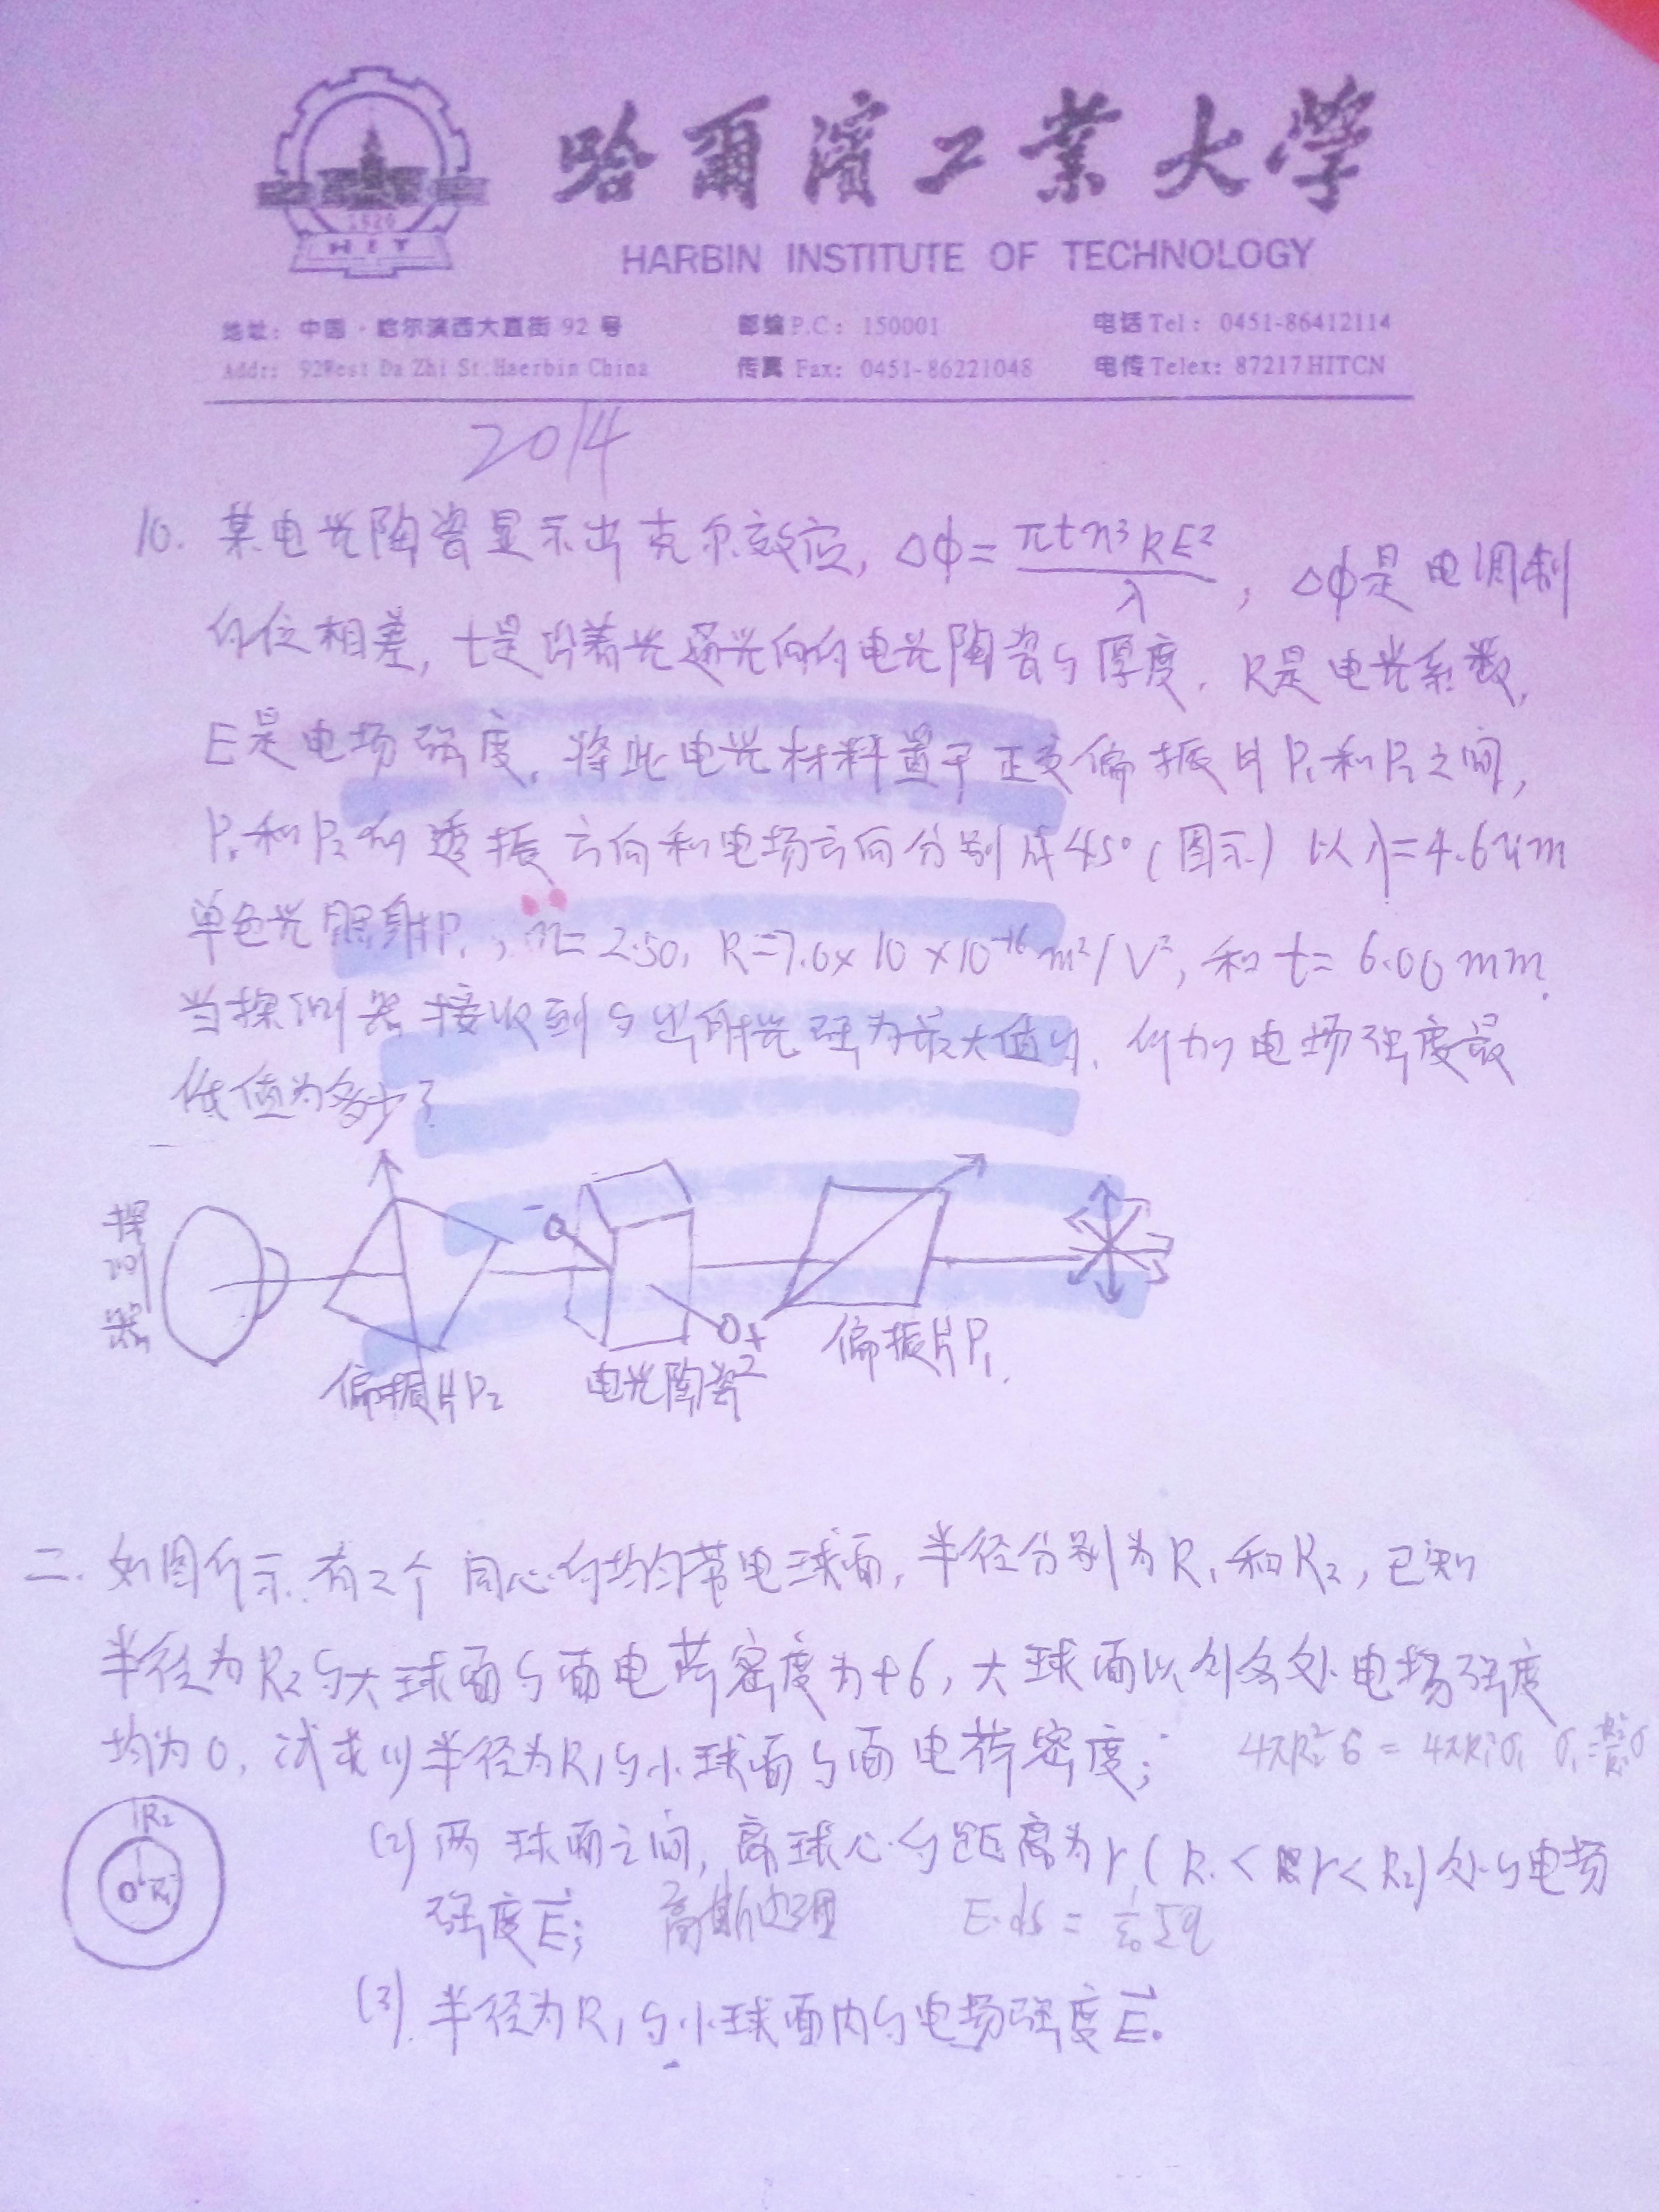 1920
HIT
哈爾濱工業大學
HARBIN INSTITUTE OF TECHNOLOGY
地址：中国·哈尔滨西大直街 92 号 邮编 P.C：150001 电话 Tel：0451-86412114
Addr：92West Da Zhi St.Haerbin China 传真 Fax：0451-86221048 电传 Telex：87217HITCN
2014
10. 某电光陶瓷显示出克尔效应, Δϕ = πtn³RE²/λ, Δϕ是电调制
的位相差, t是沿着光通光向的电光陶瓷的厚度. R是电光系数,
E是电场强度. 将此电光材料置于正交偏振片P₁和P₂之间,
P₁和P₂的透振方向和电场方向分别成45°(图示) 以λ=4.6um
单色光照射P₁, n=2.50, R=7.0×10×10⁻¹⁶m²/V², 和t=6.00mm.
当探测器接收到的出射光强为最大值时, 所加电场强度最
低值为多少?
探测器
- +
偏振片P₂ 电光陶瓷 偏振片P₁
二. 如图所示. 有2个同心的均匀带电球面, 半径分别为R₁和R₂, 已知
半径为R₂的大球面的面电荷密度为+6, 大球面以外各处电场强度
均为0, 试求(1)半径为R₁的小球面的面电荷密度; 4πR₂²6 = 4πR₁²σ₁
(2) 两球面之间, 离球心的距离为r(R₁<r<R₂)处的电场
强度E⃗; 高斯定理 E·ds = 1/ε₀ Σq
(3). 半径为R₁的小球面内的电场强度E⃗.
R₂
O R₁